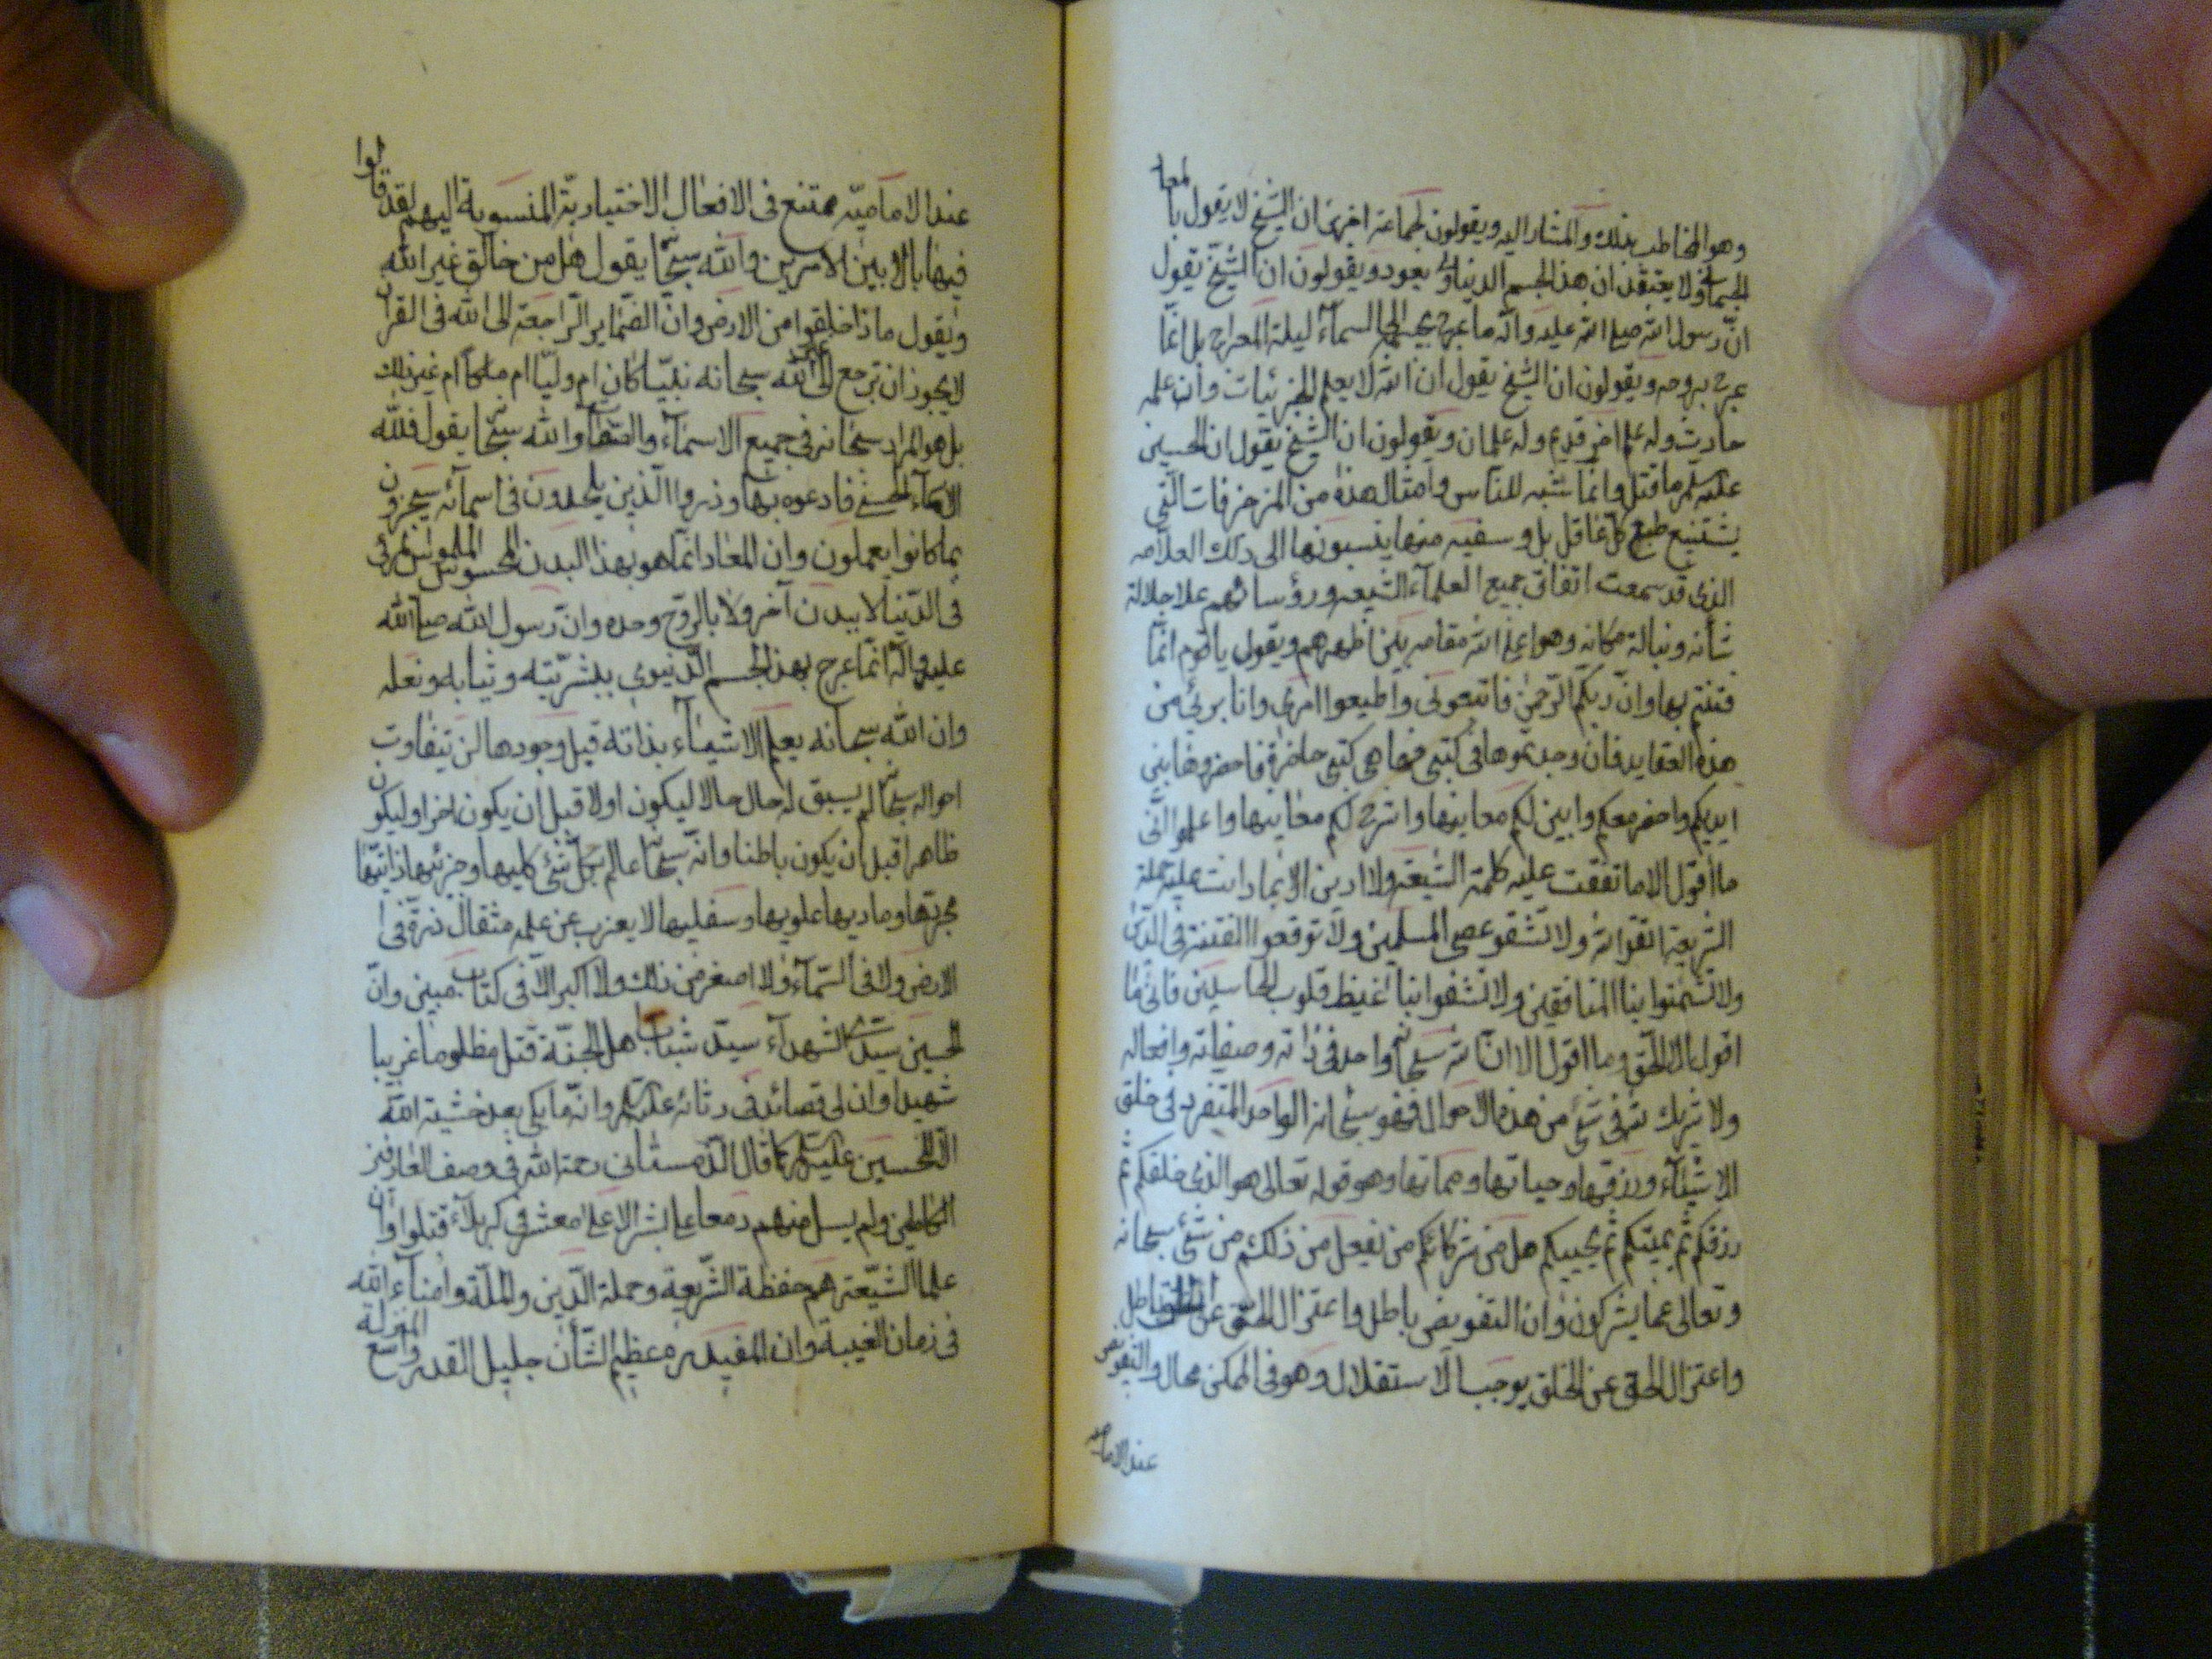 وهو المخاطب بذلك والمشار اليه ويقولون لجماعة اخرى ان الشيخ لا يقول بالمعاد
الجسماني ولا يعتقد ان هذا الجسم الدنياوي يعود ويقولون ان الشيخ يقول
ان رسول الله صلى الله عليه وآله ما عرج بجسمه الى السماء ليلة المعراج بل انما
عرج بروحه ويقولون ان الشيخ يقول ان الله لا يعلم الجزئيات وان علمه
حادث وله علم اخر قديم وله علمان ويقولون ان الشيخ يقول ان الحسين
عليه السلم ما قتل وانما شبه للناس وامثال هذه من المزخرفات التي
يشتنيع طبع كل عاقل بل وسفيه منها ينسبونها الى ذلك العلامه
الذي قد سمعت اتفاق جميع العلمآء الشيعه ورؤسائهم علا جلالة
شأنه ونبالة مكانه وهو اعلى الله مقامه بين اظهرهم ويقول يا قوم انما
فتنتم بها وان ربكم الرحمن فاتبعونى واطيعوا امرى وانا برئ من
هذه العقايد فان وجدتموها فى كتبى فها هى كتبى حاضرة فاحضروها بين
ايديكم واحضر معكم وابين لكم معاينها واشرح لكم معاينها واعلموا انى
ما اقول الا ما اتفقت عليه كلمة الشيعة ولا ادين الا بما دانت عليه حملة
الشريعة اتقوا الله ولا تشقو عصى المسلمين ولا توقعوا الفتنة فى الدين
ولا تشمتوا بنا المنافقين ولا تشفوا بنا غيظ قلوب الحاسدين فانى ما
اقول الا الحق وما اقول الا ان الله سبحانه واحد فى ذاته وصفاته وافعاله
ولا شريك له فى شئ من هذه الاحوال فهو سبحانه الواحد المتفرد فى خلق
الاشيآء ورزقها وحياتها ومماتها وهو قوله تعالى هو الذى خلقكم ثم
رزقكم ثم يميتكم ثم يحييكم هل من شركائكم من يفعل من ذلكم من شئ سبحانه
وتعالى عما يشركون وان التفويض باطل واعتزال الحق عن الخلق باطل
واعتزال الحق عن الخلق يوجب الاستقلال وهو فى الممكن محال والتفويض
عند الاماميه
عند الاماميّه ممتنع فى الافعال الاختيارية المنسوبة اليهم لقد قالوا
فيها بالا بين الامرين والله سبحانه يقول هل من خالق غير الله
ويقول ماذا خلقوا من الارض وانّ الضماير الراجعة الى الله فى القران
لا يجوز ان ترجع الى غير الله سبحانه نبيّا كان ام وليّا ام ملكا ام غير ذلك
بل هو المراد سبحانه فى جميع الاسمآء والصفات والله سبحانه يقول فلله
الاسمآء الحسنى فادعوه بها وذروا الذين يلحدون فى اسمآئه سيجزون
بما كانوا يعملون وان المعاد انما هو بهذا البدن المحسوس الملموس المرئى
فى الدنيا لا ببدن آخر ولا بالروح وحده وانّ رسول الله صلى الله
عليه وآله انما عرج بهذا الجسم الدنيوى ببشريّته وثيابه ونعله
وان الله سبحانه يعلم الاشيآء بذاته قبل وجودها لن تتفاوت
احواله سبحانه لم يسبق له حال حالا ليكون اولا قبل ان يكون اخرا وليكون
ظاهرا قبل ان يكون باطنا وانّه سبحانه عالم بكل شئ كليها وجزئيها ذاتيّها
مجرتها وماديها علويها وسفليها لا يعزب عن علمه مثقال ذرة فى
الارض ولا فى السّمآء ولا اصغر من ذلك ولا اكبر الا فى كتاب مبين وانّ
الحسين سيد الشهدآء سيّد شباب اهل الجنّة قتل مظلوما غريبا
شهيدا وان لى قصائد فى رثائه عليه السلم وانّه ما يبكى بعد خشية الله
الا للحسين عليه السلم كما قال الدمستانى رحمة الله فى وصف العارفين
الكاظمين ولم يسل منهم دمعا على بشر الا على معشر فى كربلآء قتلوا وان
علما الشيّعة هم حفظة الشّريعة وحملة الدّين والملّة وامنآء الله
فى زمان الغيبة وان المفيد عظيم الشأن جليل القدر واسع المنزلة